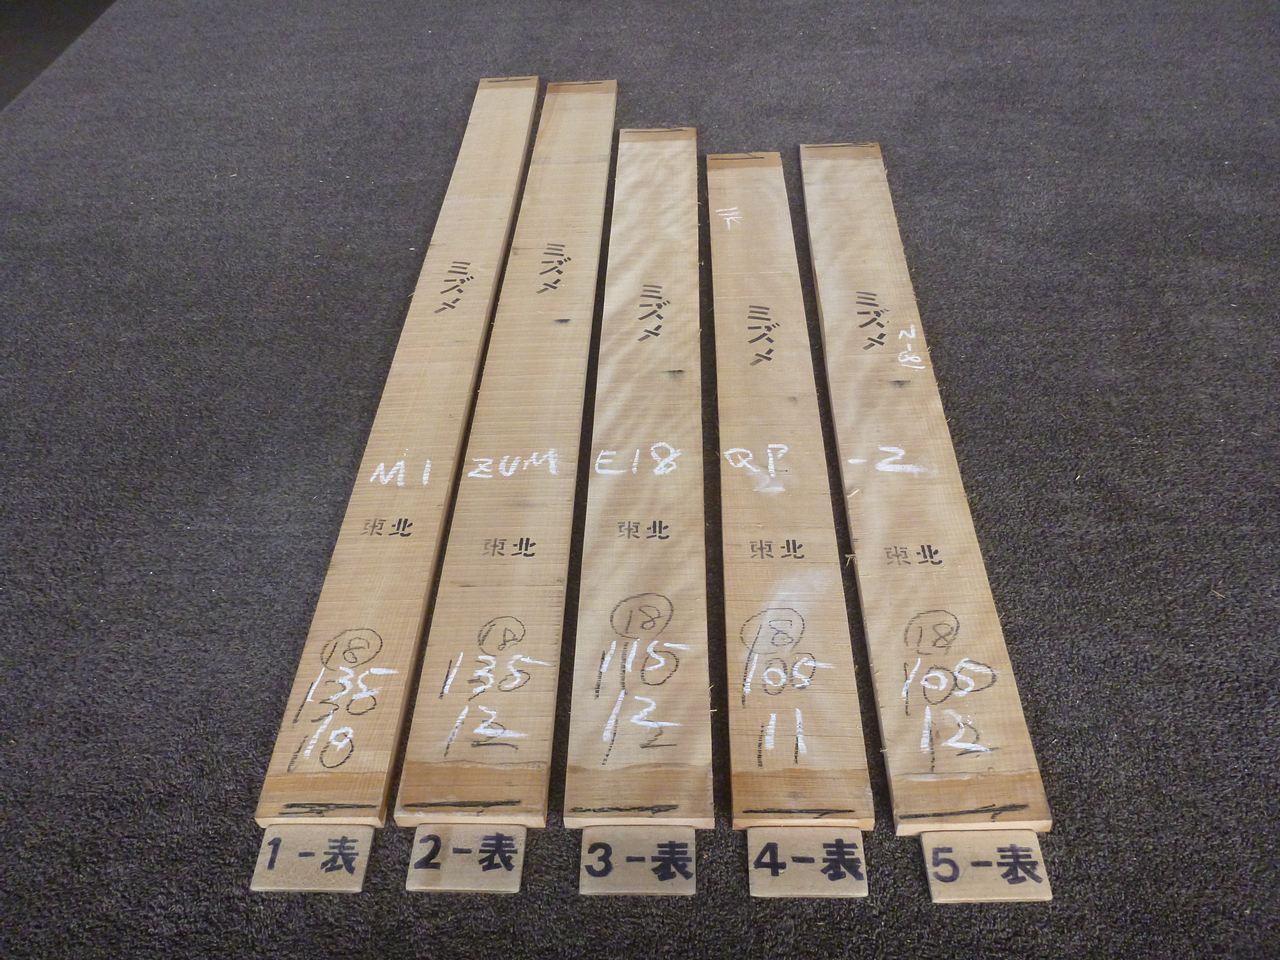 ミズメ
ミズメ
ミズメ
ミズメ
ミズメ
2-8
M1 ZUM E18 QP -2
東北
東北
東北
東北
東北
18
135
10
18
135
12
18
115
12
18
105
11
18
105
12
1-表
2-表
3-表
4-表
5-表